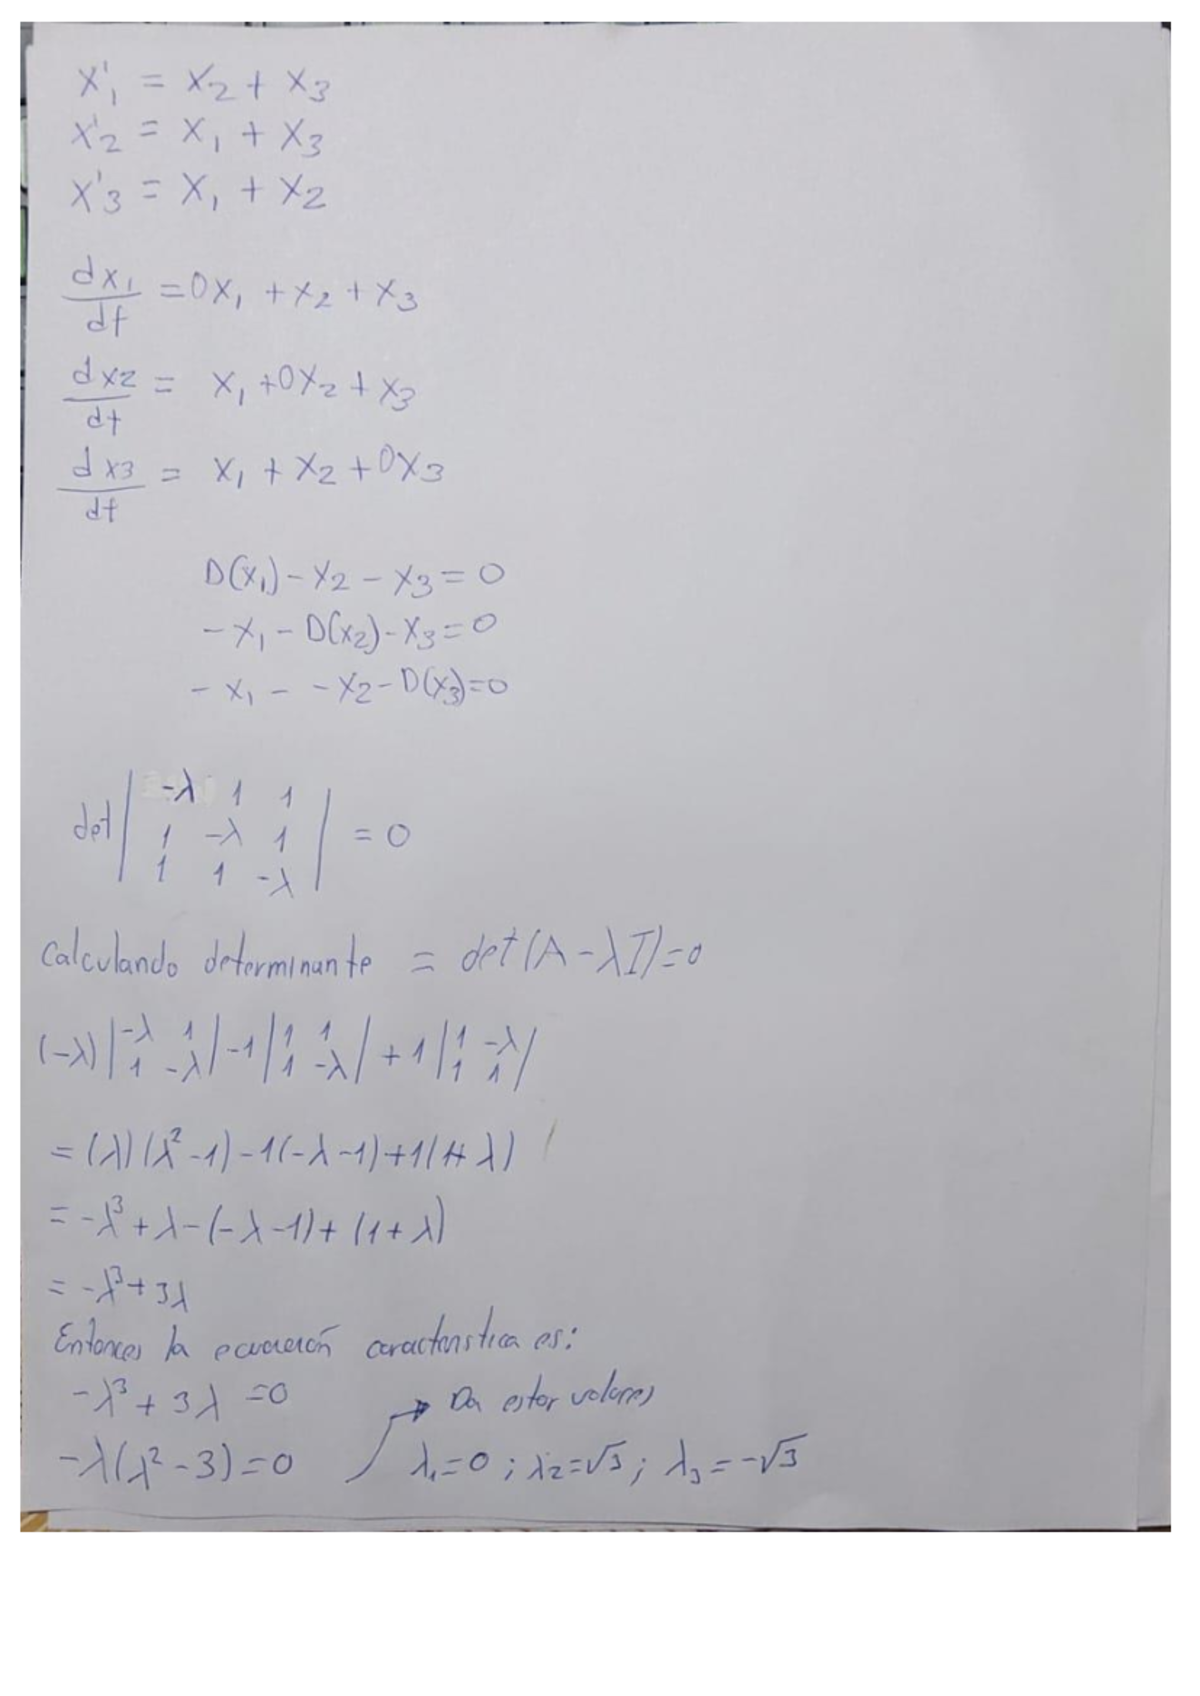 x'1 = x2 + x3
x'2 = x1 + x3
x'3 = x1 + x2
dx1/dt = 0x1 + x2 + x3
dx2/dt = x1 + 0x2 + x3
dx3/dt = x1 + x2 + 0x3
D(x1) - x2 - x3 = 0
- x1 - D(x2) - x3 = 0
- x1 - - x2 - D(x3) = 0
det | -λ 1 1 |
| 1 -λ 1 | = 0
| 1 1 -λ |
Calculando determinante = det(A - λI) = 0
(-λ) |-λ 1; 1 -λ| - 1 |1 1; 1 -λ| + 1 |1 -λ; 1 1|
= (λ)(λ² - 1) - 1(-λ - 1) + 1(1+ λ)
= -λ³ + λ - (-λ - 1) + (1 + λ)
= -λ³ + 3λ
Entonces la ecuación característica es:
-λ³ + 3λ = 0 → Da estos valores
-λ(λ² - 3) = 0 λ1 = 0 ; λ2 = √3 ; λ3 = -√3